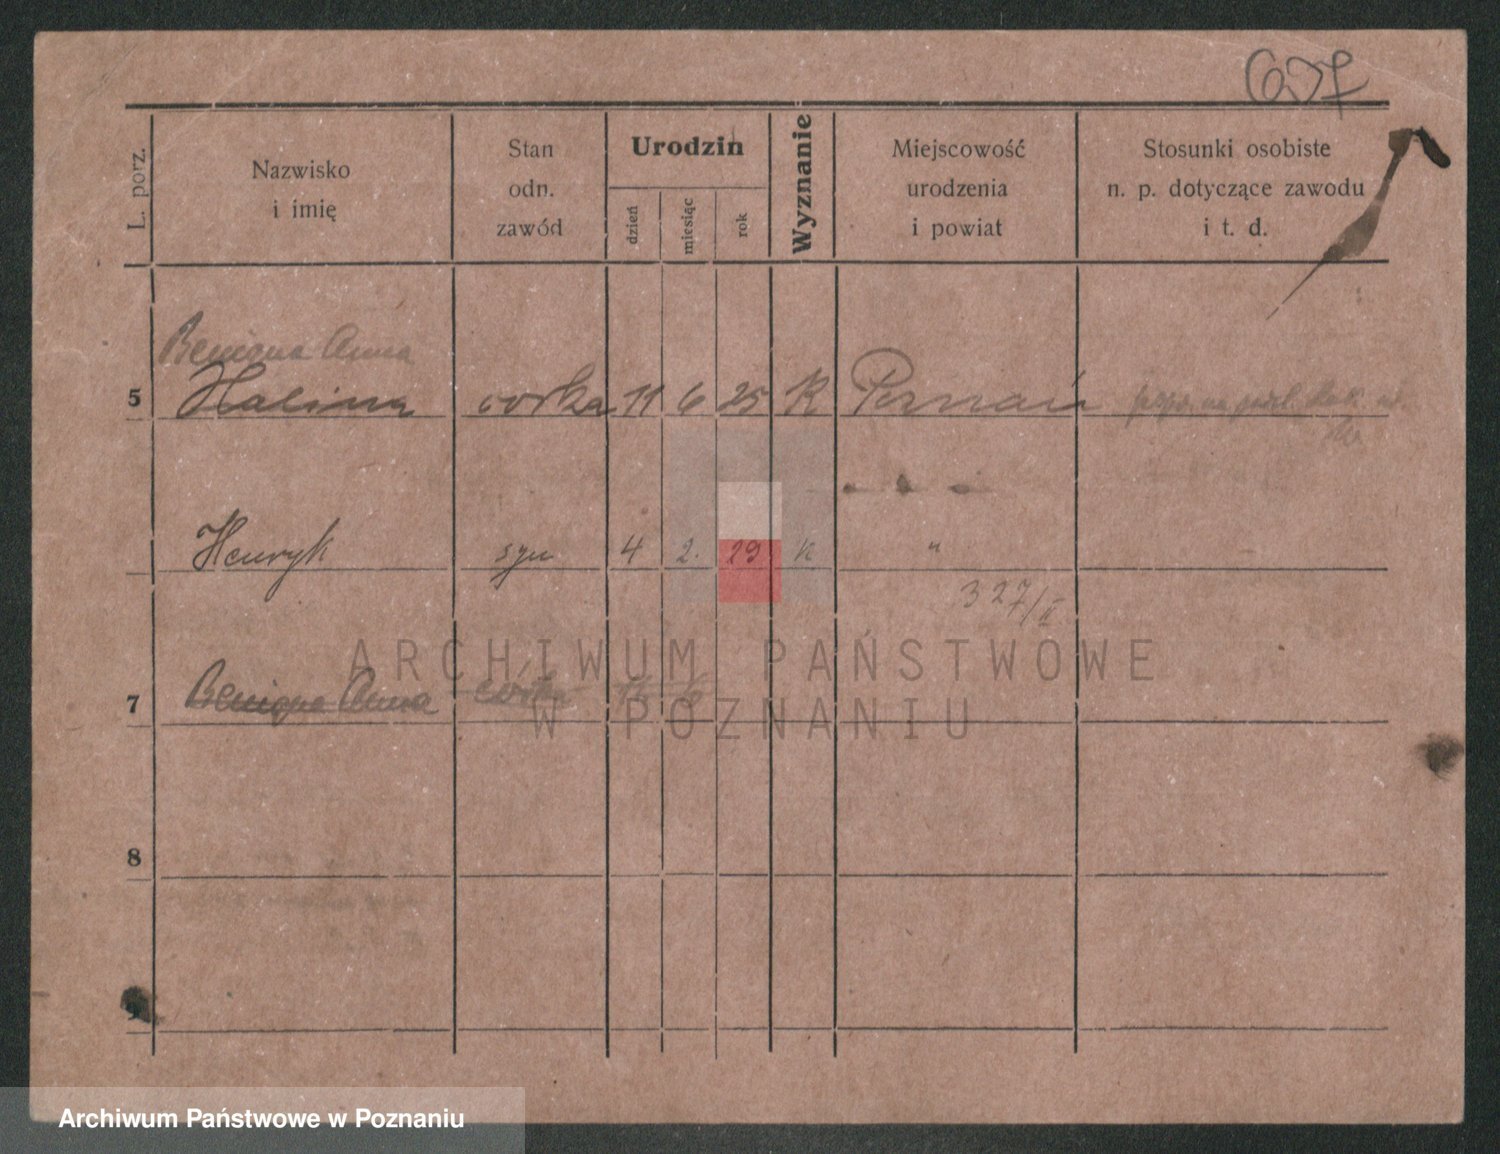 L. porz.
Nazwisko
i imię
Stan
odn.
zawód
Urodzin
dzień
miesiąc
rok
Wyznanie
Miejscowość
urodzenia
i powiat
Stosunki osobiste
n. p. dotyczące zawodu
i t. d.
Benigna Anna
5 Halina córka 11 6 25 K Poznań
Henryk syn 4 2. 29 K "
327/II
7 Benigna Anna córka
8
9
ARCHIWUM PAŃSTWOWE
W POZNANIU
Archiwum Państwowe w Poznaniu